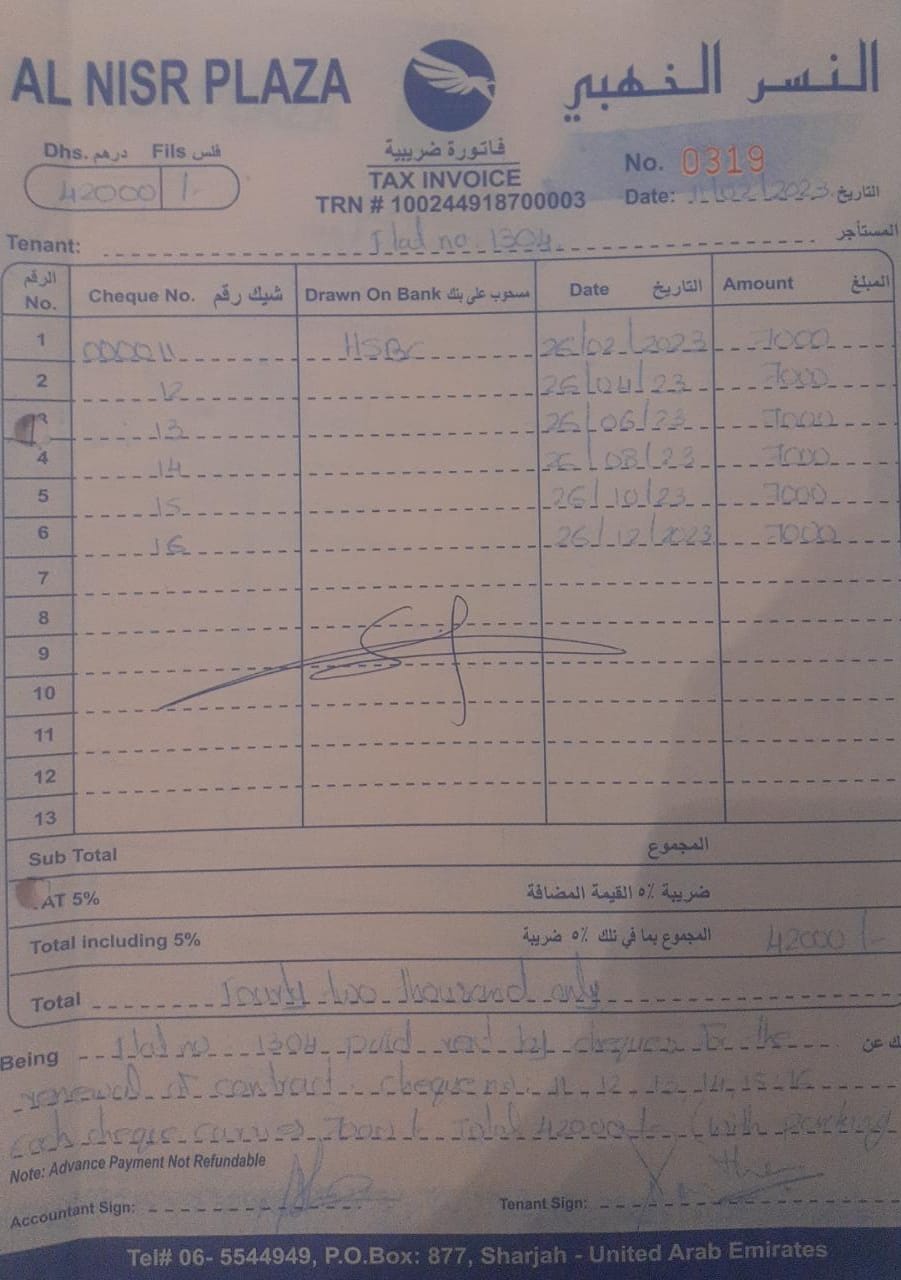 AL NISR PLAZA
النسر الذهبي
Dhs. درهم Fils فلس
42000 /-
فاتورة ضريبية
TAX INVOICE
TRN # 100244918700003
No. 0319
Date: 11/02/2023 التاريخ
Tenant: Flat no. 1304 المستأجر
الرقم No. Cheque No. شيك رقم Drawn On Bank مسحوب على بنك Date التاريخ Amount المبلغ
1 000011 HSBC 26/02/2023 7000
2 12 26/04/23 7000
3 13 26/06/23 7000
4 14 26/08/23 7000
5 15 26/10/23 7000
6 16 26/12/2023 7000
7
8
9
10
11
12
13
Sub Total المجموع
AT 5% ضريبة ٥٪ القيمة المضافة
Total including 5% المجموع بما في ذلك ٥٪ ضريبة 42000/-
Total Fourty two thousand only
Being Flat no 1304 paid rent by cheques for the ك عن
renewal of contract. cheque no: 11, 12, 13, 14, 15, 16
each cheque carries 7000/- Total 42000/- (with parking
Note: Advance Payment Not Refundable
Accountant Sign: Tenant Sign:
Tel# 06- 5544949, P.O.Box: 877, Sharjah - United Arab Emirates